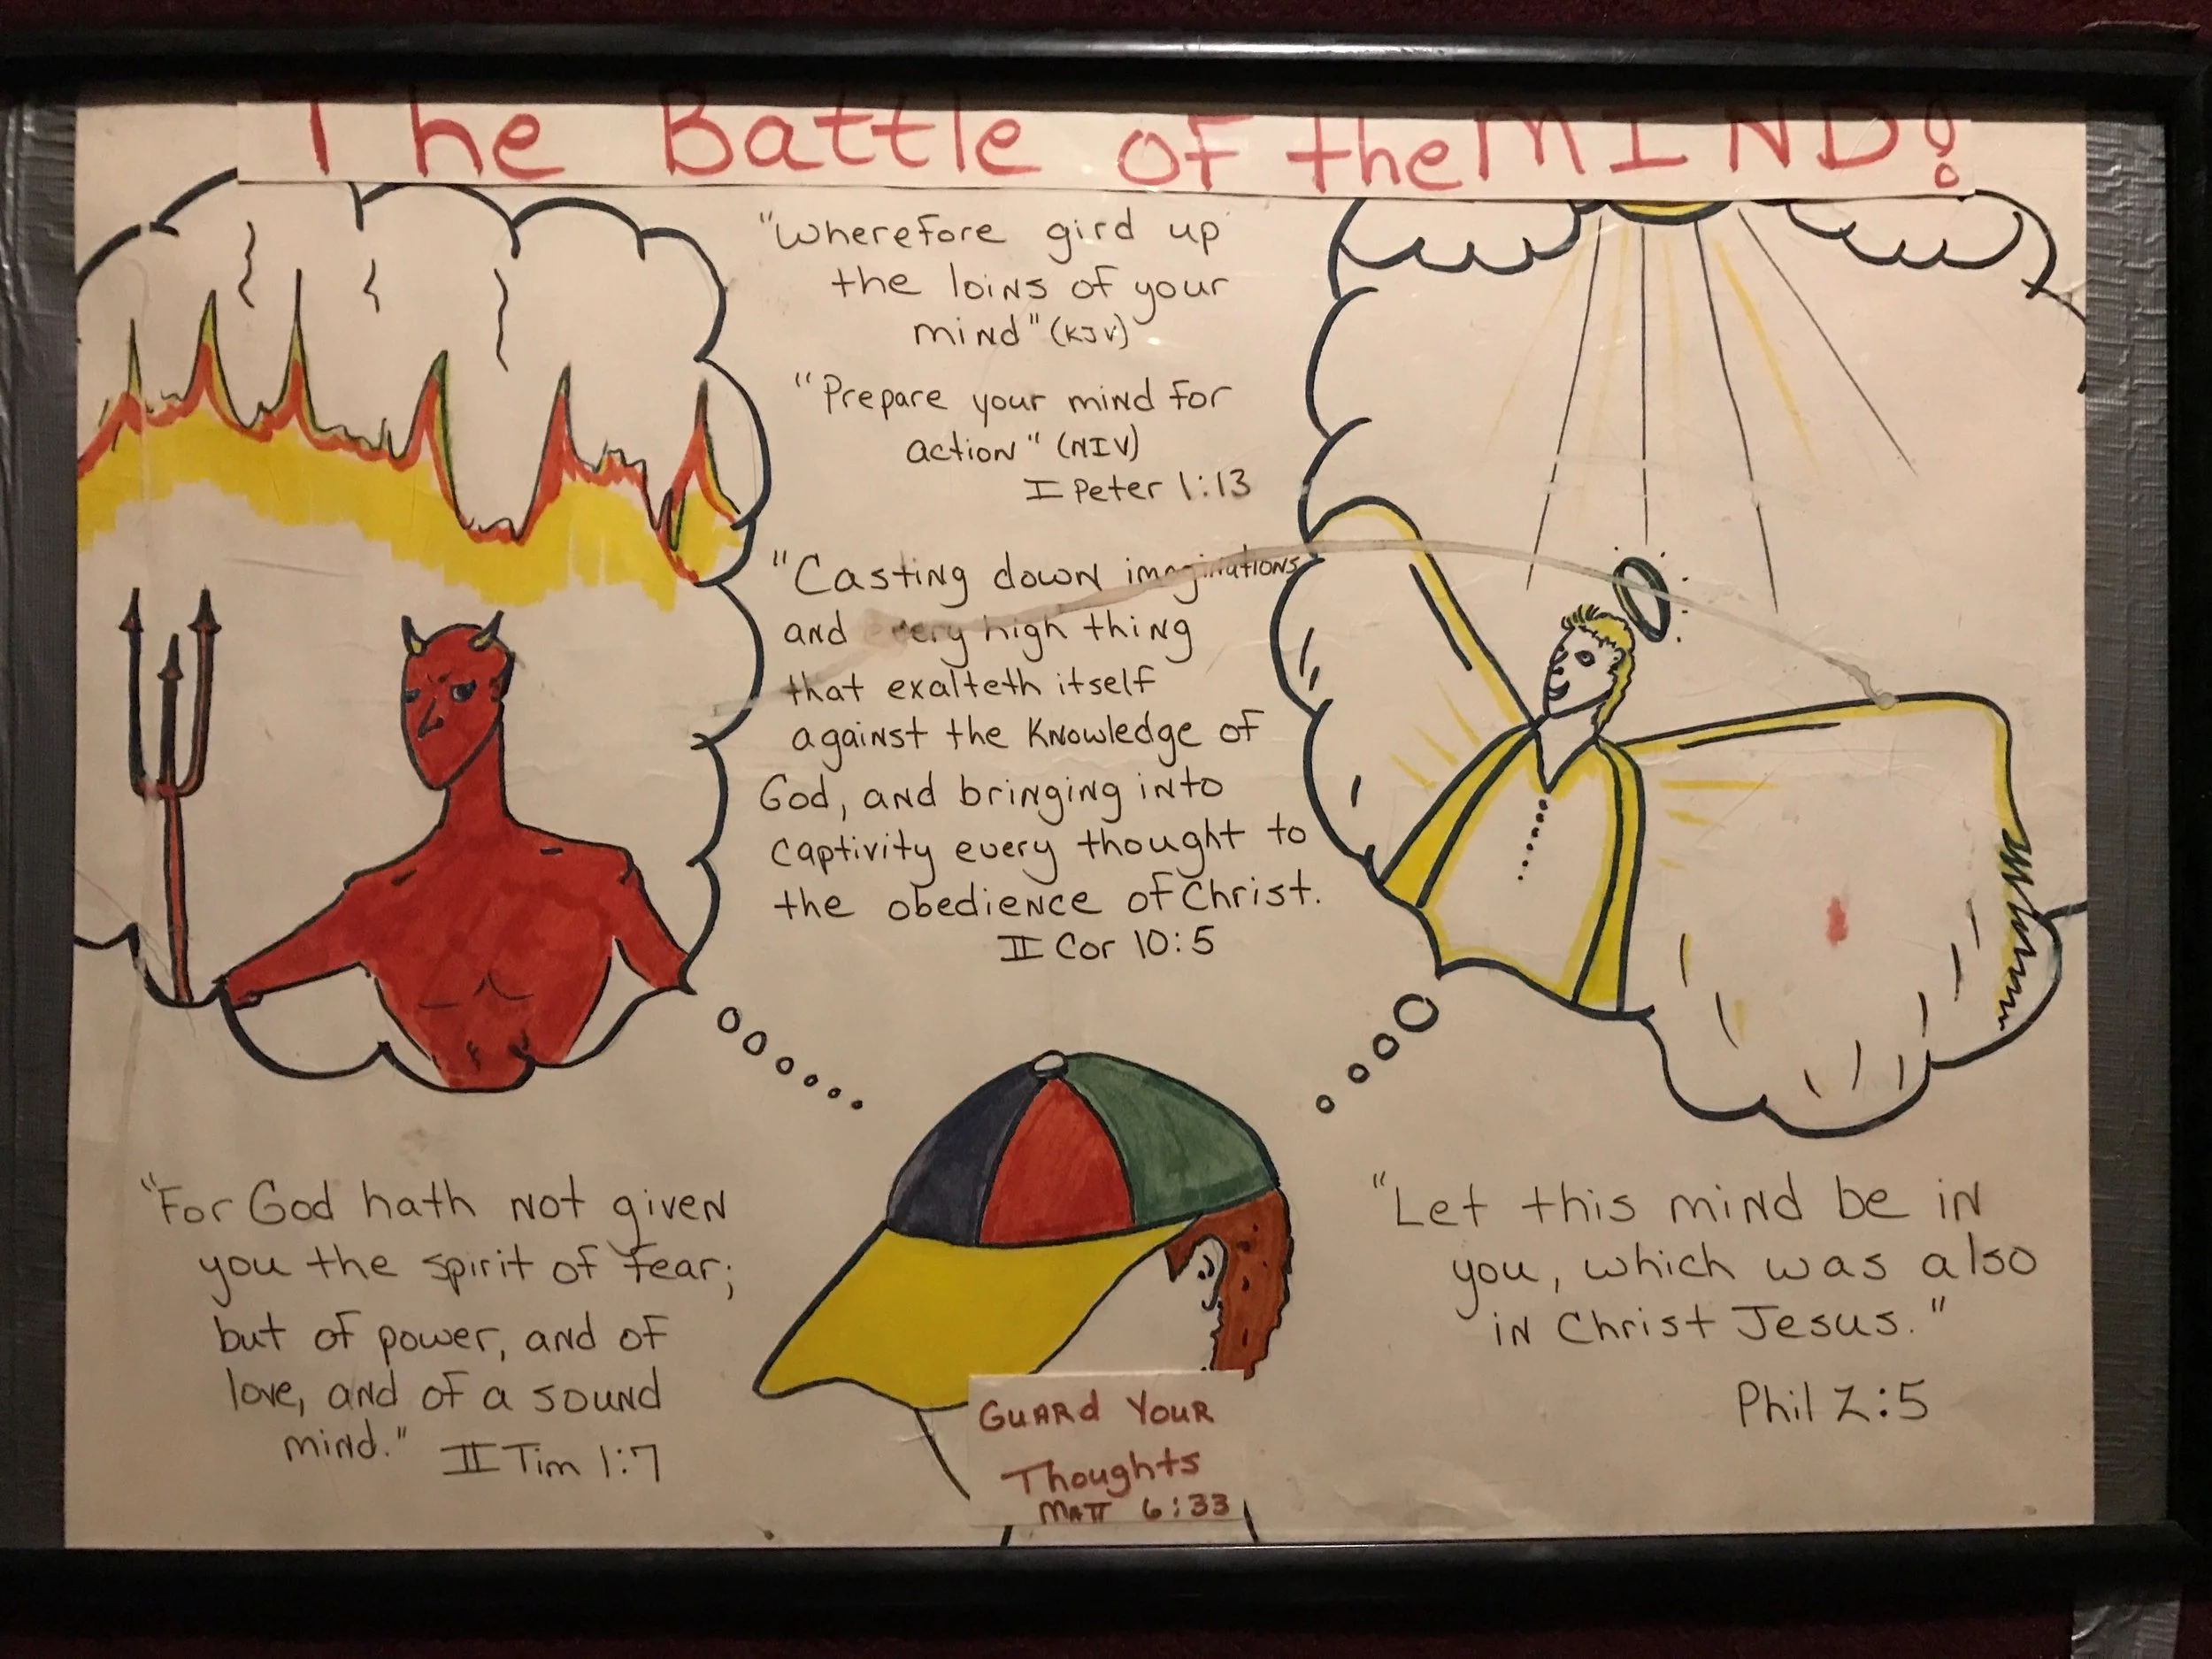 The Battle of the MIND!
"Wherefore gird up
the loins of your
mind" (KJV)
"Prepare your mind for
action" (NIV)
I Peter 1:13
"Casting down imaginations
and every high thing
that exalteth itself
against the Knowledge of
God, and bringing into
captivity every thought to
the obedience of Christ.
II Cor 10:5
"For God hath not given
you the spirit of fear;
but of power, and of
love, and of a sound
mind." II Tim 1:7
"Let this mind be in
you, which was also
in Christ Jesus."
Phil 2:5
Guard Your
Thoughts
Matt 6:33